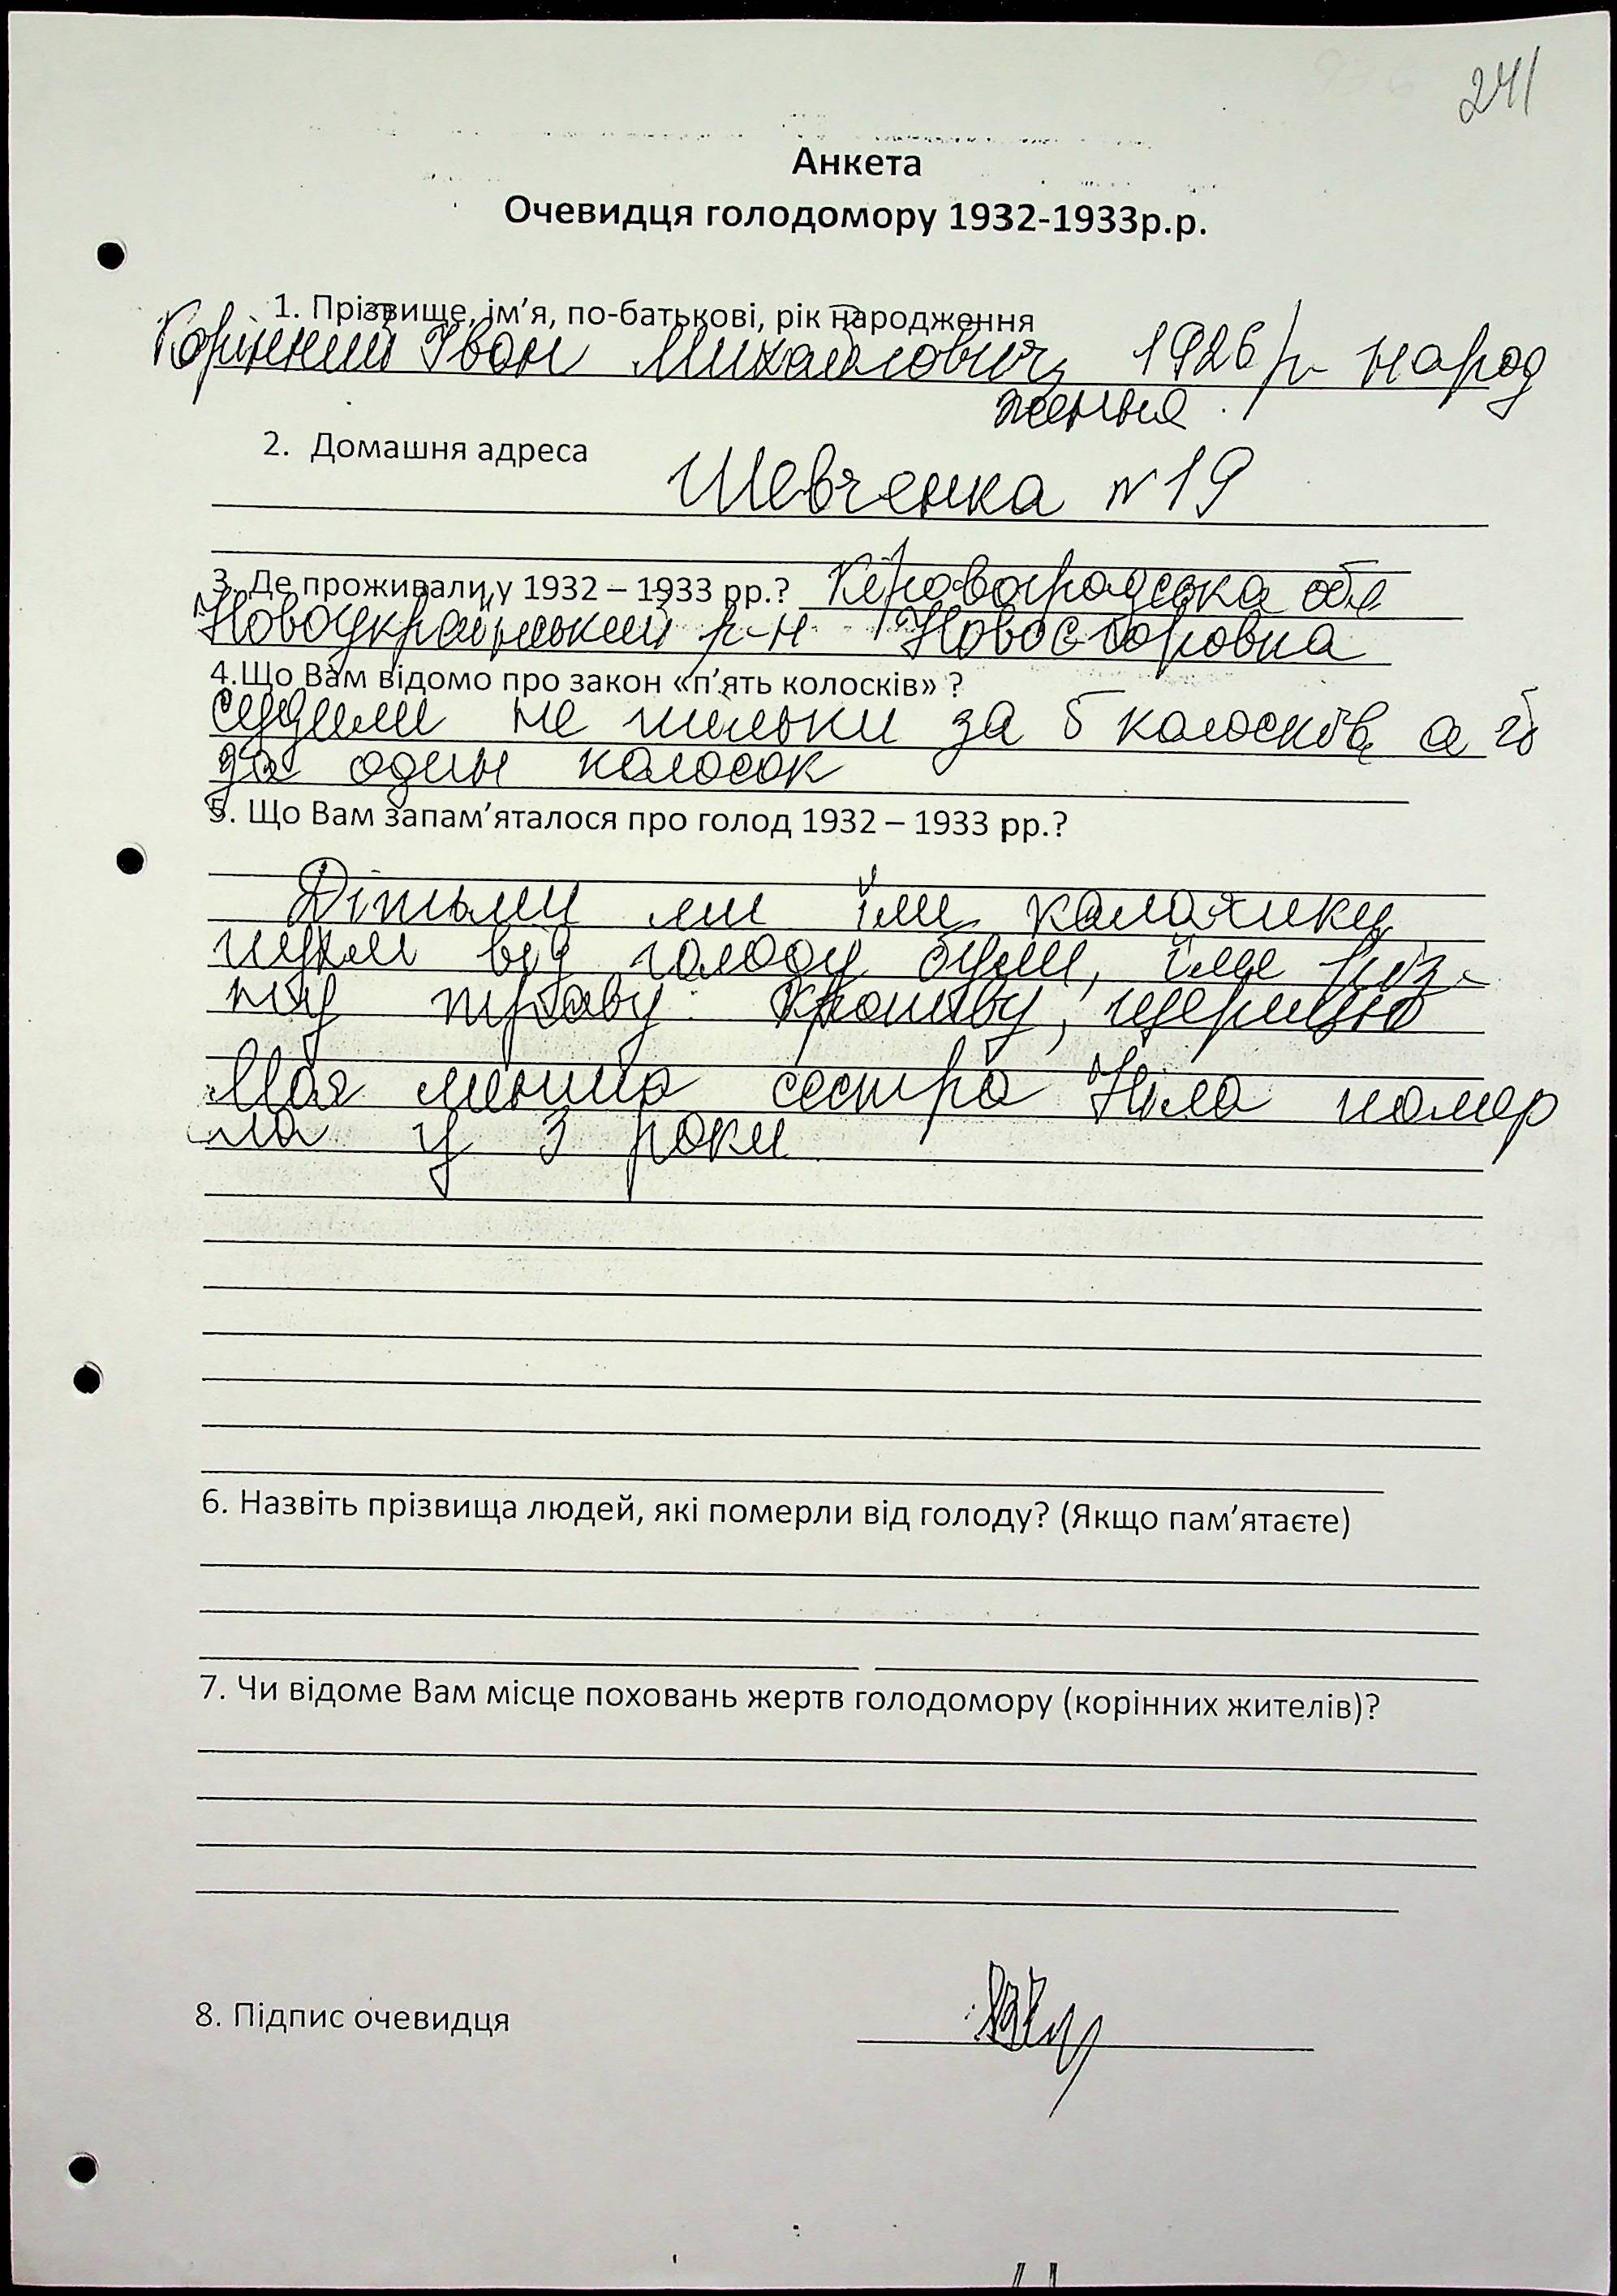 241
Анкета
Очевидця голодомору 1932-1933р.р.
1. Прізвище, ім'я, по-батькові, рік народження
Горінний Іван Михайлович, 1926 р народ
ження.
2. Домашня адреса
Шевченка № 19
3. Де проживали у 1932 – 1933 рр.? Кіровоградська обл
Новоукраїнський р-н
4.Що Вам відомо про закон «п'ять колосків» ?
судили не тільки за 5 колосків, а й
за один колосок
5. Що Вам запам'яталося про голод 1932 – 1933 рр.?
Дітьми ми їли калачики
пухлі від голоду були, їли різ-
ну траву: кропиву, щерицю
Моя менша сестра Ніла помер
ла у 3 роки
6. Назвіть прізвища людей, які померли від голоду? (Якщо пам'ятаєте)
7. Чи відоме Вам місце поховань жертв голодомору (корінних жителів)?
8. Підпис очевидця